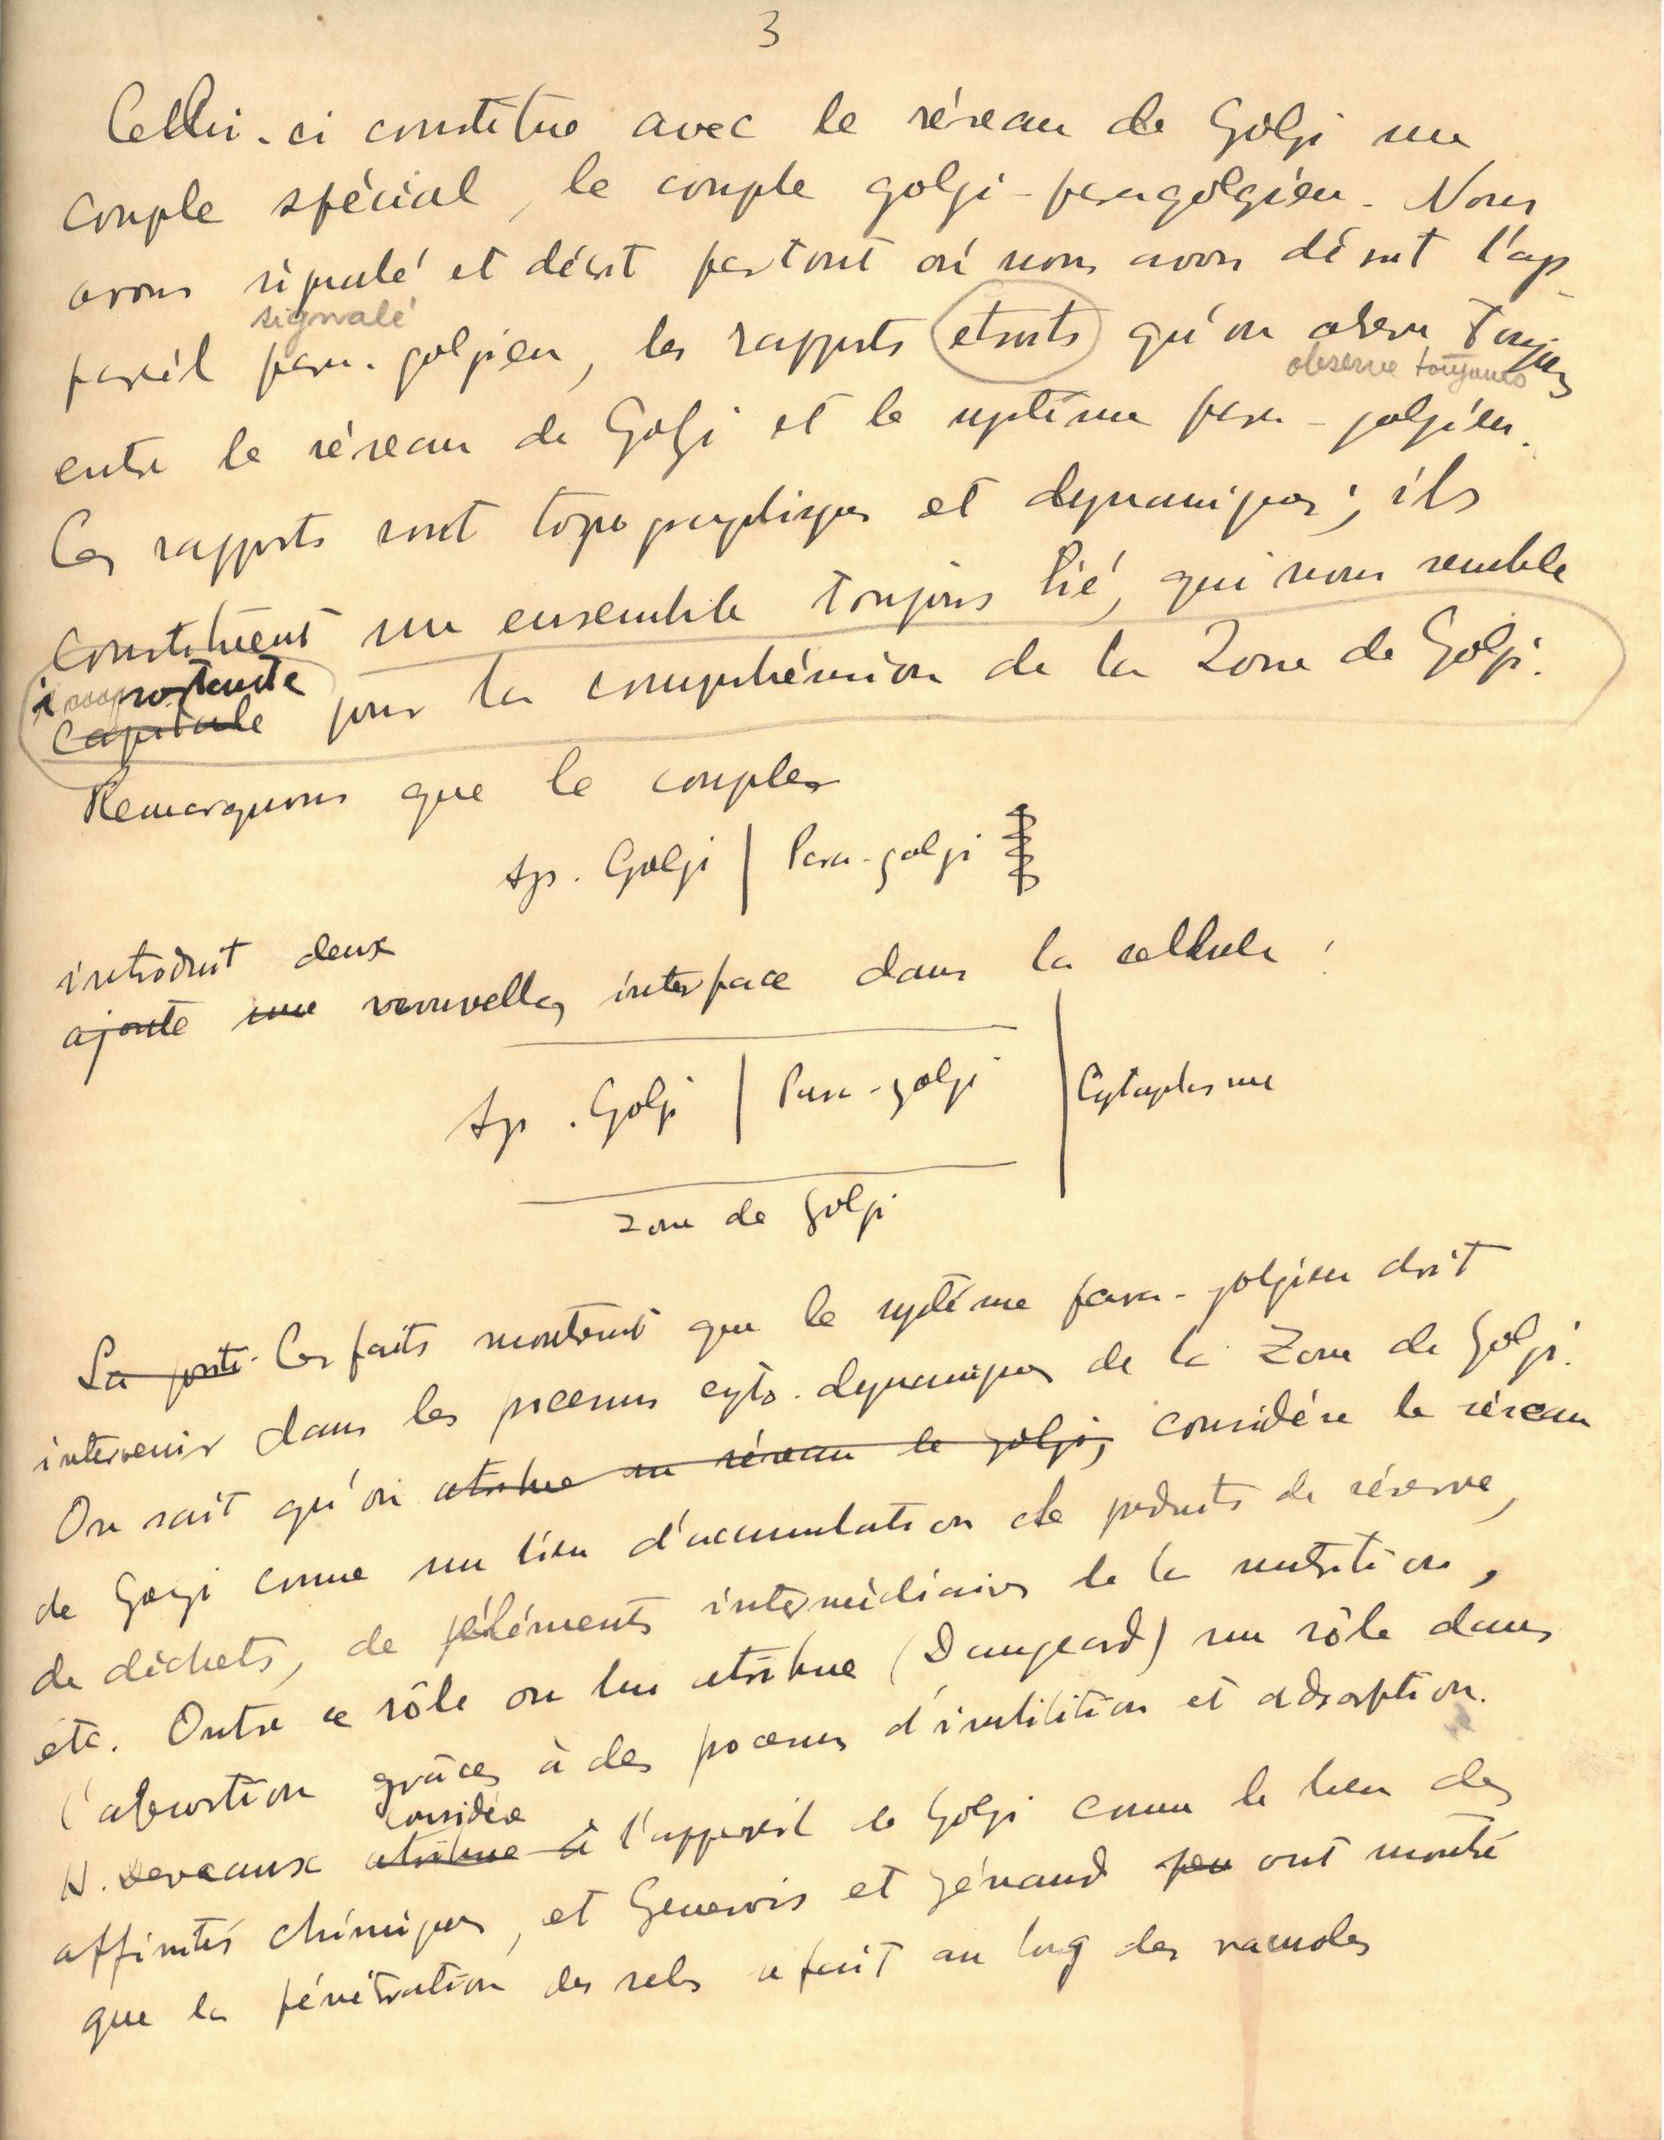 3
Cellui-ci constitue avec le réseau de Golgi un
couple spécial, le couple golgi-paragolgien. Nous
avons signalé et décrit partout où nous avons décrit l'ap-
signalé
pareil para-golgien, les rapports etroits qu'on observe toujours
observe toujours
entre le réseau de Golgi et le système para-golgien.
Ces rapports sont topographiques et dynamiques; ils
constituent un ensemble toujours lié, qui nous semble
importante
capitale pour la compréhension de la Zone de Golgi.
Remarquons que le couples
Ap. Golgi | Para-golgi
introduit deux
ajoute une nouvelles interface dans la cellule :
Ap. Golgi | Para-golgi | Cytoplasme
Zone de Golgi
La Ces faits montrent que le système para-golgien doit
intervenir dans les processus cyto-dynamiques de la Zone de Golgi.
On sait qu'on atribue au réseau de golgi, considére le réseau
de Golgi comme un lieu d'accumulation de produits de réserve,
de déchets, de éléments intermédiaires de la nutrition,
etc. Outre ce rôle on lui atribue (Dangeard) un rôle dans
l'absortion grâces à des processus d'imbibition et adsorption.
considére
H. Deveaux atribue à l'appareil de Golgi comme le lieu des
affinités chimiques, et Genevois et génaud ont montré
que la pénétration des sels se fait au long des vacuoles